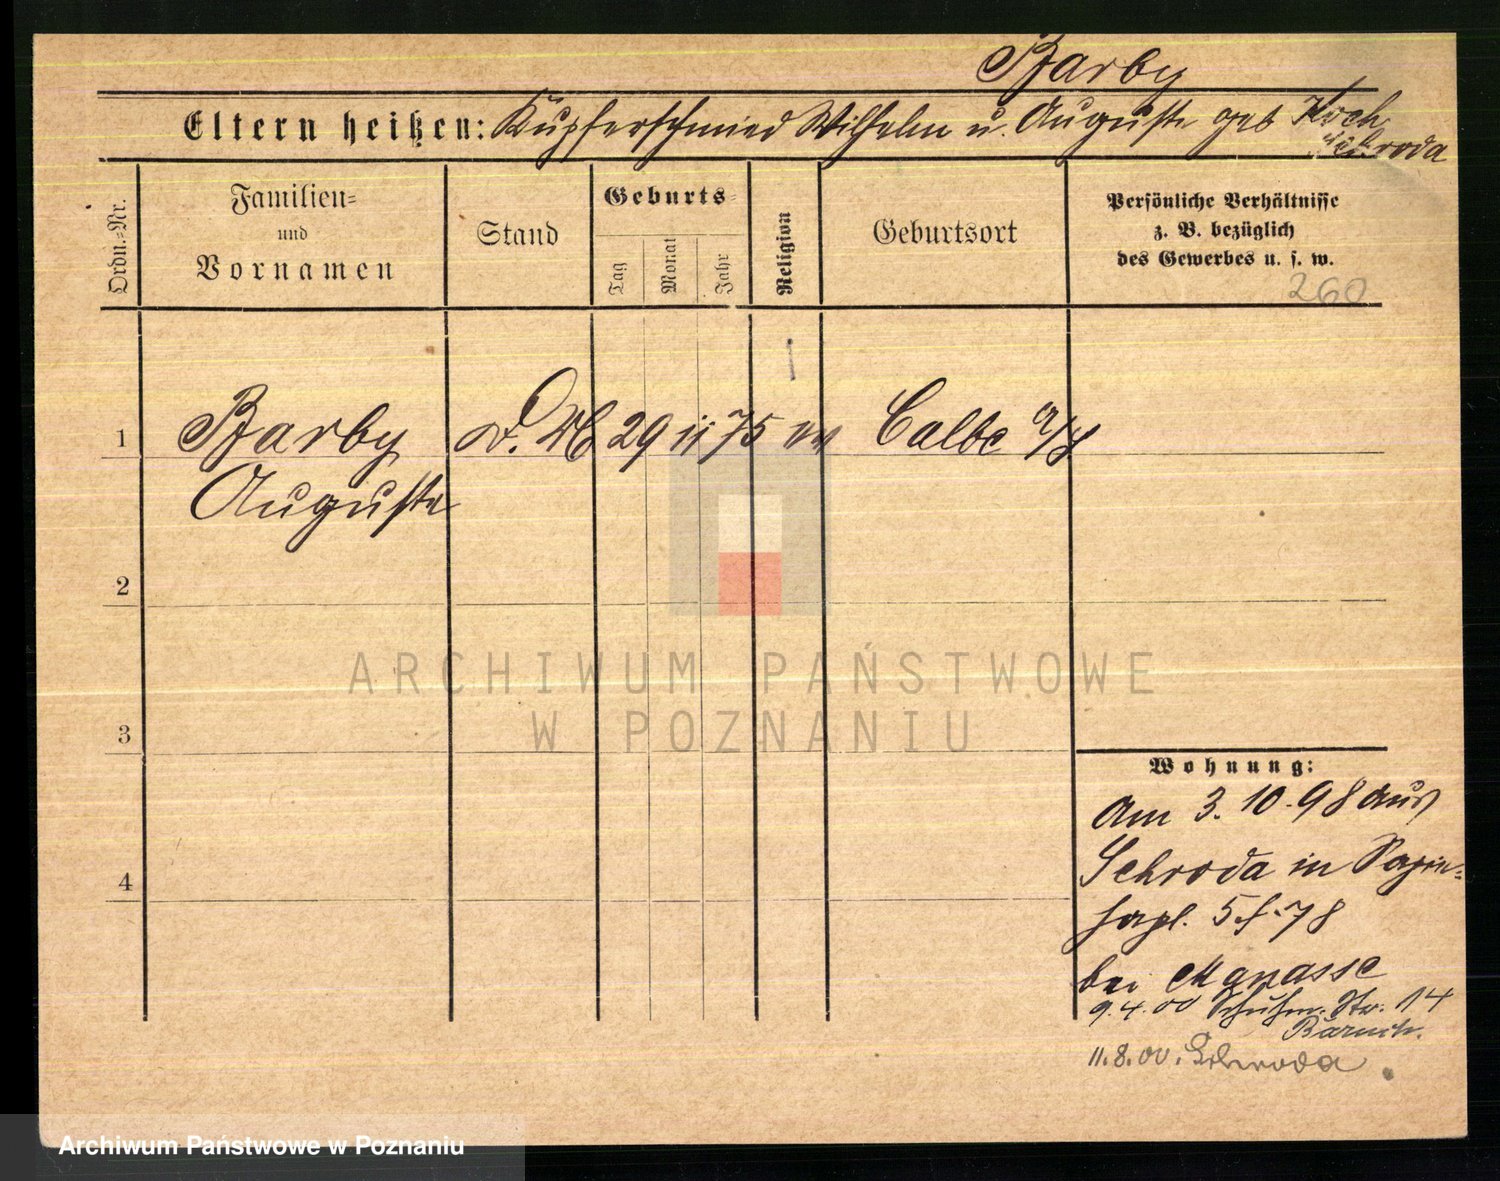 Barby
Eltern heißen: Kupferschmied Wilhelm u. Auguste geb Koch
Schroda
Ordn.=Nr.
Familien=
und
Vornamen
Stand
Geburts=
Tag
Monat
Jahr
Religion
Geburtsort
Persönliche Verhältnisse
z. B. bezüglich
des Gewerbes u. s. w.
260
1 Barby 29 11 75 ev Calbe a/S
Auguste
2
3
4
ARCHIWUM PAŃSTWOWE
W POZNANIU
Wohnung:
Am 3. 10. 98 aus
Schroda in
5 f. 78
bei Manasse
9.4.00 Schuhm. Str. 14
11.8.00. Schroda
Archiwum Państwowe w Poznaniu